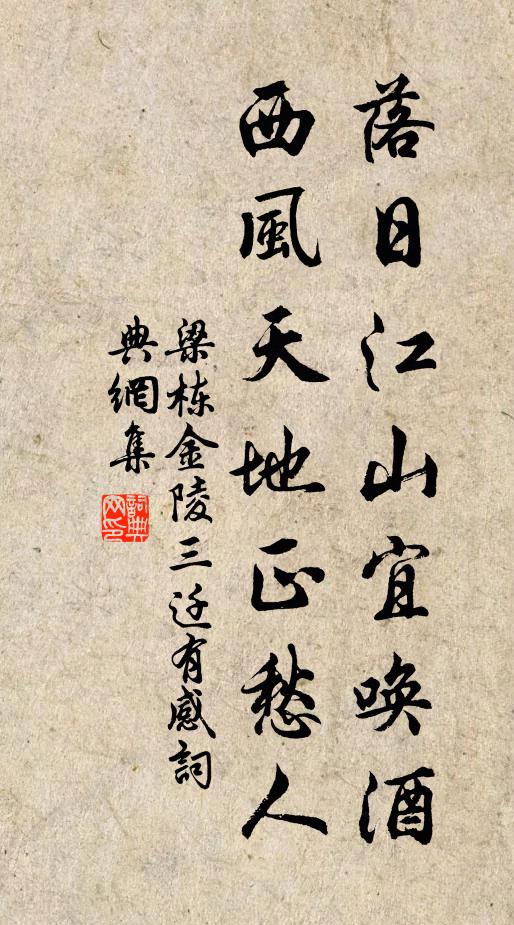 落日江山宜唤酒
西風天地正愁人
梁栋金陵三迁有感詞
典網集
詞典
网印